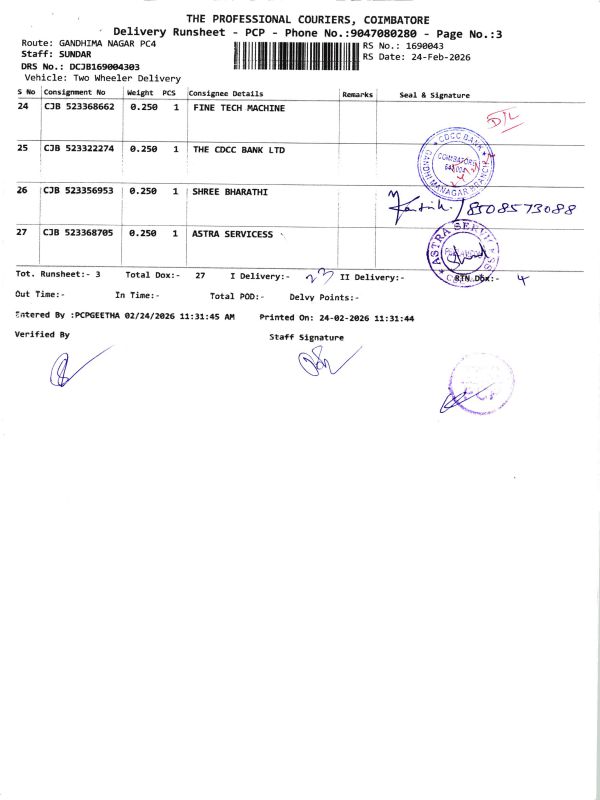 THE PROFESSIONAL COURIERS, COIMBATORE
Delivery Runsheet - PCP - Phone No.:9047080280 - Page No.:3
Route: GANDHIMA NAGAR PC4
RS No.: 1690043
Staff: SUNDAR
RS Date: 24-Feb-2026
DRS No.: DCJB169004303
Vehicle: Two Wheeler Delivery
S No Consignment No Weight PCS Consignee Details Remarks Seal & Signature
24 CJB 523368662 0.250 1 FINE TECH MACHINE
D/L
25 CJB 523322274 0.250 1 THE CDCC BANK LTD
CDCC BANK
COIMBATORE
GANDHIMANAGAR BRANCH
26 CJB 523356953 0.250 1 SHREE BHARATHI
8508573088
27 CJB 523368705 0.250 1 ASTRA SERVICESS
ASTRA
Tot. Runsheet:- 3 Total Dox:- 27 I Delivery:- 23 II Delivery:- RTN Dox:- 4
Out Time:- In Time:- Total POD:- Delvy Points:-
Entered By :PCPGEETHA 02/24/2026 11:31:45 AM Printed On: 24-02-2026 11:31:44
Verified By Staff Signature